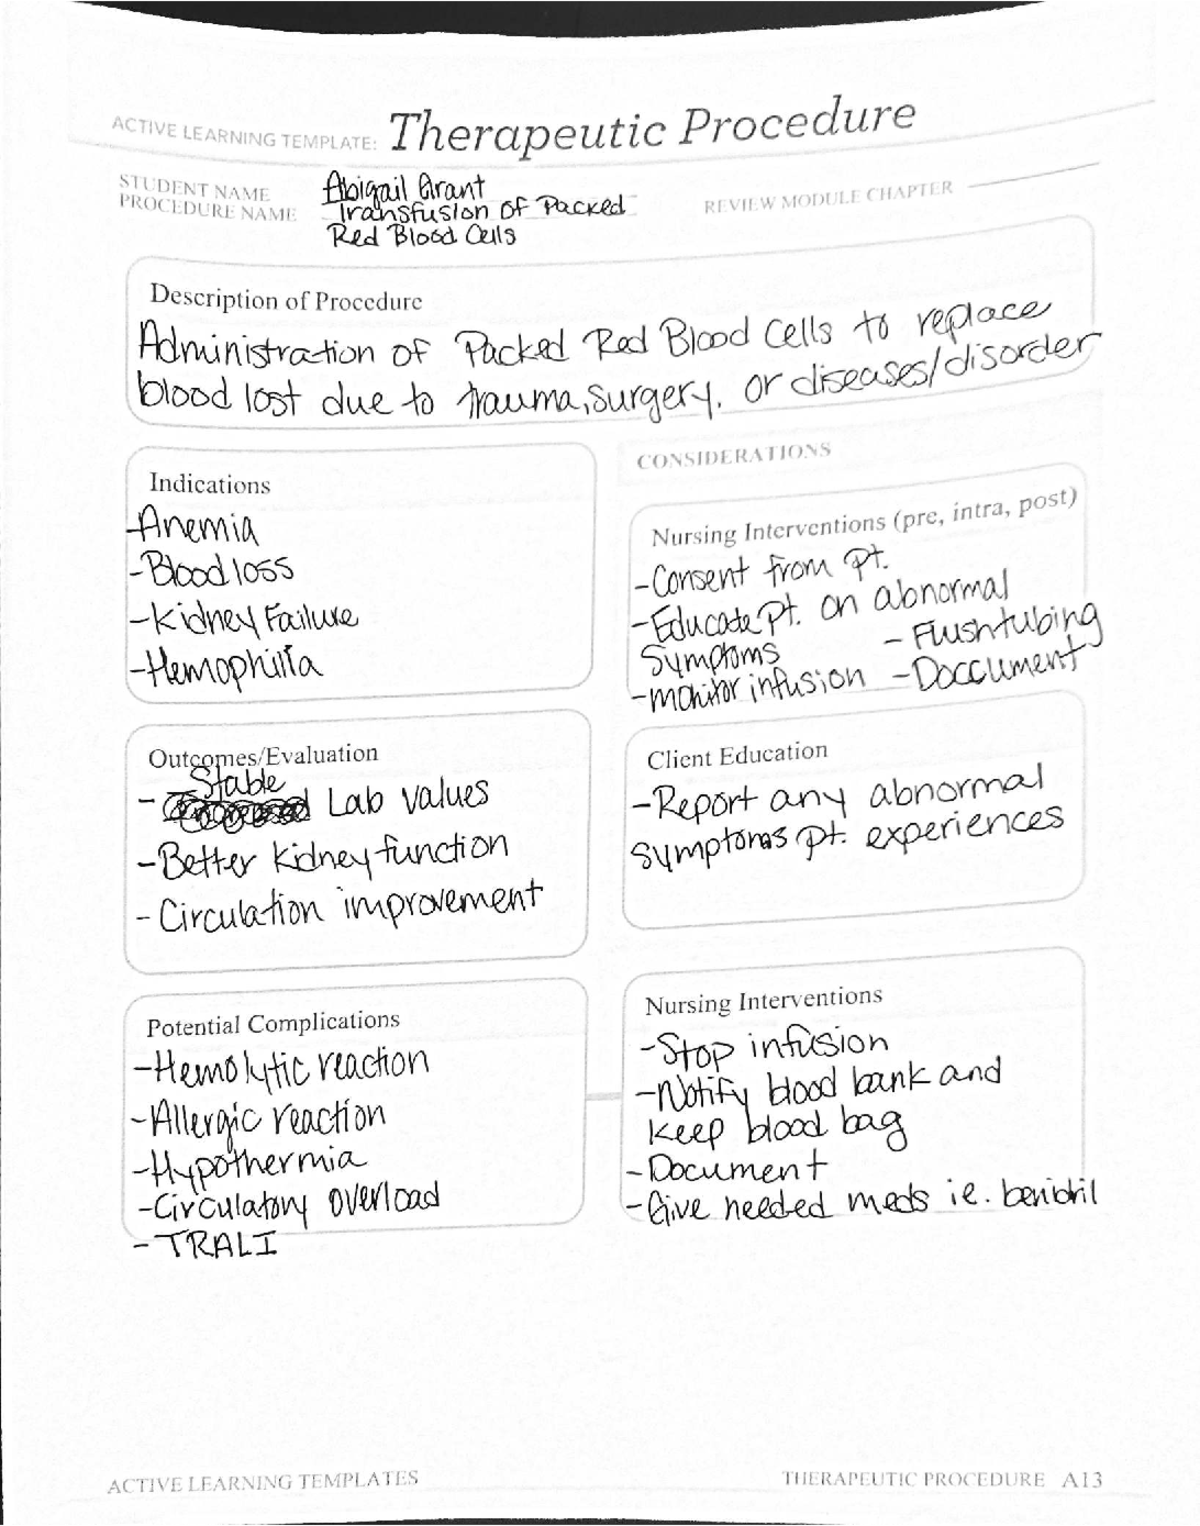 ACTIVE LEARNING TEMPLATE: Therapeutic Procedure
STUDENT NAME Abigail Grant
PROCEDURE NAME Transfusion of Packed
Red Blood Cells
REVIEW MODULE CHAPTER
Description of Procedure
Administration of Packed Red Blood Cells to replace
blood lost due to trauma, surgery, or diseases/disorder
Indications
-Anemia
-Blood loss
-Kidney Failure
-Hemophilia
CONSIDERATIONS
Nursing Interventions (pre, intra, post)
-Consent from pt.
-Educate Pt. on abnormal
Symptoms
-Flush tubing
-monitor infusion
-Doccument
Outcomes/Evaluation
- Stable Lab values
-Better kidney function
- Circulation improvement
Client Education
-Report any abnormal
symptoms pt. experiences
Potential Complications
-Hemolytic reaction
-Allergic reaction
-Hypothermia
-Circulatory overload
-TRALI
Nursing Interventions
-Stop infusion
-Notify blood bank and
keep blood bag
-Document
-Give needed meds ie.
ACTIVE LEARNING TEMPLATES
THERAPEUTIC PROCEDURE A13